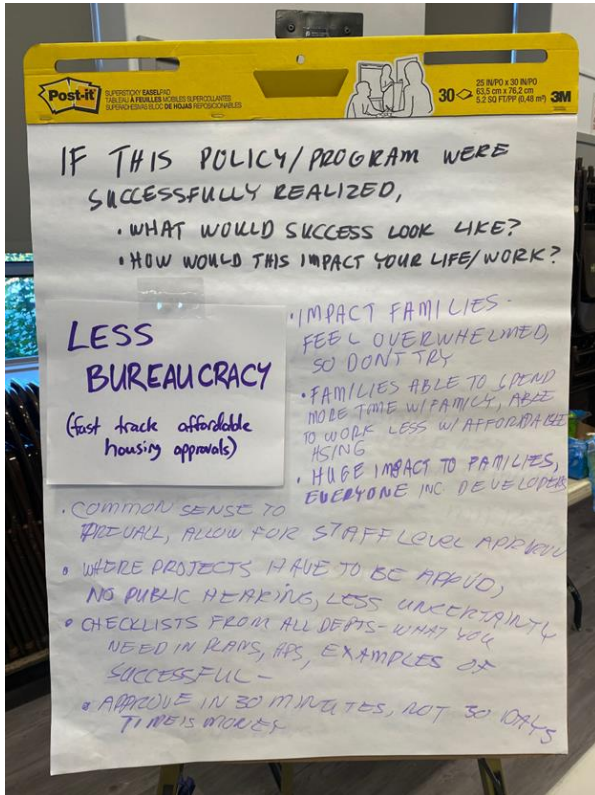 Post-it
SUPERSTICKY EASELPAD
TABLEAU À FEUILLES MOBILES SUPERCOLLANTES
SUPERADHESIVAS BLOC DE HOJAS REPOSICIONABLES
30
25 IN/PO x 30 IN/PO
63,5 cm x 76,2 cm
5.2 SQ FT/PP (0,48 m²)
3M
IF THIS POLICY/PROGRAM WERE
SUCCESSFULLY REALIZED,
• WHAT WOULD SUCCESS LOOK LIKE?
• HOW WOULD THIS IMPACT YOUR LIFE/WORK?
LESS
BUREAUCRACY
(fast track affordable
housing approvals)
• IMPACT FAMILIES -
FEEL OVERWHELMED,
SO DONT TRY
• FAMILIES ABLE TO SPEND
MORE TIME W/FAMILY, ABLE
TO WORK LESS W/ AFFORDABLE
HSING
• HUGE IMPACT TO FAMILIES,
EVERYONE INC DEVELOPERS
• COMMON SENSE TO
PREVAIL, ALLOW FOR STAFF LEVEL APPROVAL
• WHERE PROJECTS HAVE TO BE APPVD,
NO PUBLIC HEARING, LESS UNCERTAINTY
• CHECKLISTS FROM ALL DEPTS - WHAT YOU
NEED IN PLANS, APPS, EXAMPLES OF
SUCCESSFUL -
• APPROVE IN 30 MINUTES, NOT 30 DAYS
TIME IS MONEY